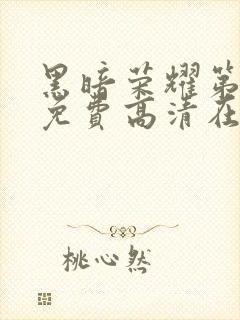 黑暗荣耀第
免費高清在
桃心然